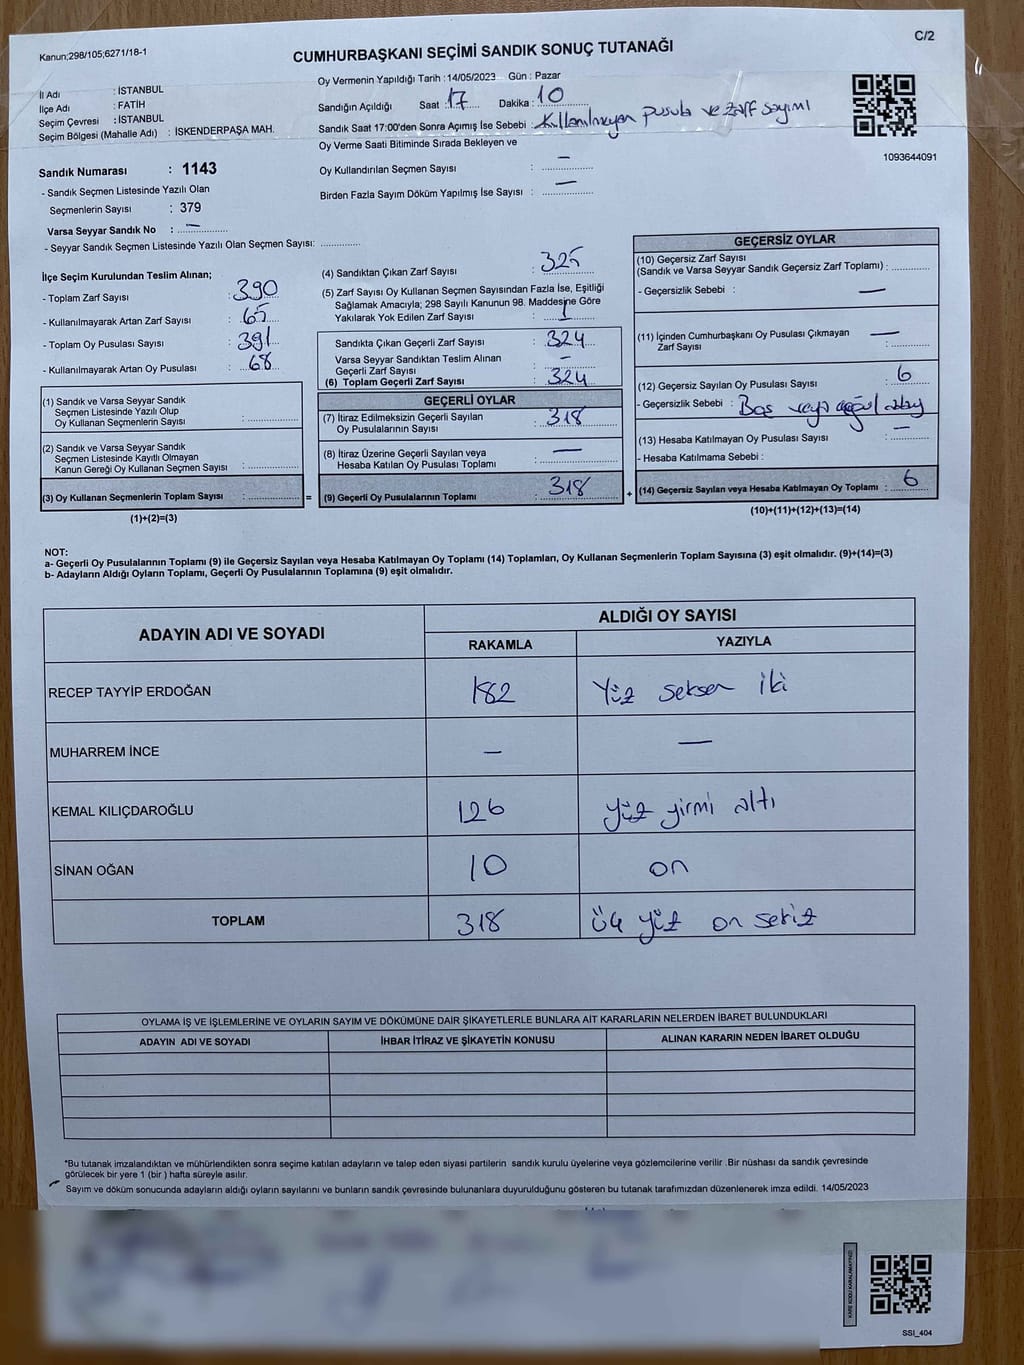 Kanun;298/105;6271/18-1
C/2
CUMHURBAŞKANI SEÇİMİ SANDIK SONUÇ TUTANAĞI
İl Adı : İSTANBUL
İlçe Adı : FATİH
Seçim Çevresi : İSTANBUL
Seçim Bölgesi (Mahalle Adı) : İSKENDERPAŞA MAH.
Oy Vermenin Yapıldığı Tarih : 14/05/2023 Gün : Pazar
Sandığın Açıldığı Saat : 17 Dakika : 10
Sandık Saat 17:00'den Sonra Açımış İse Sebebi : Kullanılmayan pusula ve zarf sayımı
Oy Verme Saati Bitiminde Sırada Bekleyen ve
Oy Kullandırılan Seçmen Sayısı : —
Birden Fazla Sayım Döküm Yapılmış İse Sayısı : —
1093644091
Sandık Numarası : 1143
- Sandık Seçmen Listesinde Yazılı Olan
Seçmenlerin Sayısı : 379
Varsa Seyyar Sandık No : —
- Seyyar Sandık Seçmen Listesinde Yazılı Olan Seçmen Sayısı: ..............
İlçe Seçim Kurulundan Teslim Alınan;
- Toplam Zarf Sayısı : 390
- Kullanılmayarak Artan Zarf Sayısı : 65
- Toplam Oy Pusulası Sayısı : 391
- Kullanılmayarak Artan Oy Pusulası : 68
(1) Sandık ve Varsa Seyyar Sandık
Seçmen Listesinde Yazılı Olup
Oy Kullanan Seçmenlerin Sayısı : ..............
(2) Sandık ve Varsa Seyyar Sandık
Seçmen Listesinde Kayıtlı Olmayan
Kanun Gereği Oy Kullanan Seçmen Sayısı : ..............
(3) Oy Kullanan Seçmenlerin Toplam Sayısı : ..............
(1)+(2)=(3)
=
(4) Sandıktan Çıkan Zarf Sayısı : 325
(5) Zarf Sayısı Oy Kullanan Seçmen Sayısından Fazla İse, Eşitliği
Sağlamak Amacıyla; 298 Sayılı Kanunun 98. Maddesine Göre
Yakılarak Yok Edilen Zarf Sayısı : 1
Sandıkta Çıkan Geçerli Zarf Sayısı : 324
Varsa Seyyar Sandıktan Teslim Alınan
Geçerli Zarf Sayısı : —
(6) Toplam Geçerli Zarf Sayısı : 324
GEÇERLİ OYLAR
(7) İtiraz Edilmeksizin Geçerli Sayılan
Oy Pusulalarının Sayısı : 318
(8) İtiraz Üzerine Geçerli Sayılan veya
Hesaba Katılan Oy Pusulası Toplamı : —
(9) Geçerli Oy Pusulalarının Toplamı : 318
+
GEÇERSİZ OYLAR
(10) Geçersiz Zarf Sayısı
(Sandık ve Varsa Seyyar Sandık Geçersiz Zarf Toplamı) : ..............
- Geçersizlik Sebebi : —
(11) İçinden Cumhurbaşkanı Oy Pusulası Çıkmayan
Zarf Sayısı : —
(12) Geçersiz Sayılan Oy Pusulası Sayısı : 6
- Geçersizlik Sebebi : Boş veya
(13) Hesaba Katılmayan Oy Pusulası Sayısı : —
- Hesaba Katılmama Sebebi :
(14) Geçersiz Sayılan veya Hesaba Katılmayan Oy Toplamı : 6
(10)+(11)+(12)+(13)=(14)
NOT:
a- Geçerli Oy Pusulalarının Toplamı (9) ile Geçersiz Sayılan veya Hesaba Katılmayan Oy Toplamı (14) Toplamları, Oy Kullanan Seçmenlerin Toplam Sayısına (3) eşit olmalıdır. (9)+(14)=(3)
b- Adayların Aldığı Oyların Toplamı, Geçerli Oy Pusulalarının Toplamına (9) eşit olmalıdır.
ADAYIN ADI VE SOYADI
ALDIĞI OY SAYISI
RAKAMLA YAZIYLA
RECEP TAYYİP ERDOĞAN 182 Yüz seksen iki
MUHARREM İNCE — —
KEMAL KILIÇDAROĞLU 126 yüz yirmi altı
SİNAN OĞAN 10 on
TOPLAM 318 üç yüz on sekiz
OYLAMA İŞ VE İŞLEMLERİNE VE OYLARIN SAYIM VE DÖKÜMÜNE DAİR ŞİKAYETLERLE BUNLARA AİT KARARLARIN NELERDEN İBARET BULUNDUKLARI
ADAYIN ADI VE SOYADI İHBAR İTİRAZ VE ŞİKAYETİN KONUSU ALINAN KARARIN NEDEN İBARET OLDUĞU
*Bu tutanak imzalandıktan ve mühürlendikten sonra seçime katılan adayların ve talep eden siyasi partilerin sandık kurulu üyelerine veya gözlemcilerine verilir .Bir nüshası da sandık çevresinde
görülecek bir yere 1 (bir ) hafta süreyle asılır.
Sayım ve döküm sonucunda adayların aldığı oyların sayılarını ve bunların sandık çevresinde bulunanlara duyurulduğunu gösteren bu tutanak tarafımızdan düzenlenerek imza edildi. 14/05/2023
KARE KODU KARALAMAYINIZ!
SSI_404